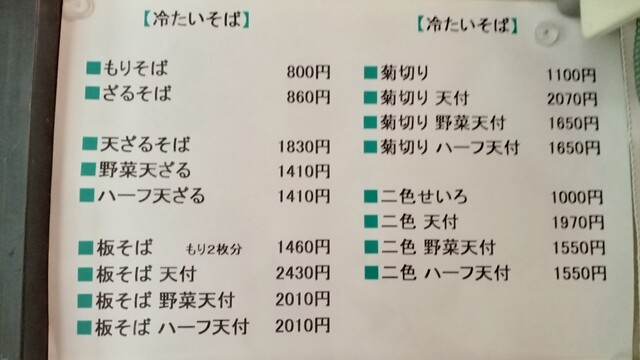 【冷たいそば】
■もりそば 800円
■ざるそば 860円
■天ざるそば 1830円
■野菜天ざる 1410円
■ハーフ天ざる 1410円
■板そば もり2枚分 1460円
■板そば 天付 2430円
■板そば 野菜天付 2010円
■板そば ハーフ天付 2010円
【冷たいそば】
■菊切り 1100円
■菊切り 天付 2070円
■菊切り 野菜天付 1650円
■菊切り ハーフ天付 1650円
■二色せいろ 1000円
■二色 天付 1970円
■二色 野菜天付 1550円
■二色 ハーフ天付 1550円